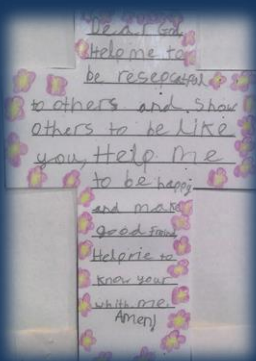 Dear God
Help me to
be resepcatful
to others and show
others to be like
you, Help me
to be happy
and make
good
Help me to
know your
me.
Amen